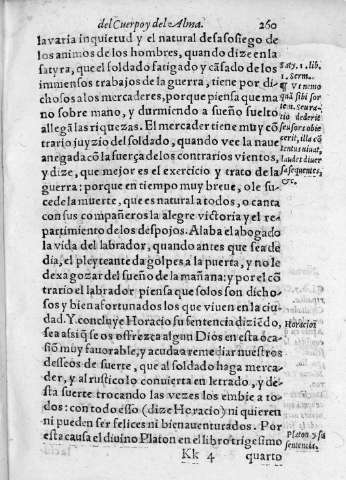 del Cuerpo y del Alma. 260
la varia inquietud y el natural desasosiego de
los animos de los hombres, quando dize en la
satyra, que el soldado fatigado y cāsado de los
immensos trabajos de la guerra, tiene por di-
chosos a los mercaderes, porque piensa que ma
no sobre mano, y durmiendo a sueño suelto
allegā las riquezas. El mercader tiene muy cō
trario juyzio del soldado, quando vee la naue
anegada cō la fuerça de los contrarios vientos,
y dize, que mejor es el exercicio y trato de la
guerra: porque en tiempo muy breue, o le su-
cede la muerte, que es natural a todos, o canta
con sus compañeros la alegre victoria y el re-
partimiento de los despojos. Alaba el abogado
la vida del labrador, quando antes que sea de
dia, el pleyteante da golpes a la puerta, y no le
dexa gozar del sueño de la mañana: y por el cō
trario el labrador piensa que solos son dicho-
sos y bien afortunados los que viuen en la ciu-
dad. Y concluye Horacio su sentencia diziēdo,
sea assi q̄ se os offrezca algun Dios en esta oca-
siō muy fauorable, y acuda a remediar nuestros
desseos de suerte, que al soldado haga merca-
der, y al rustico lo conuierta en letrado, y de-
sta suerte trocando las vezes los embie a to-
dos: con todo esso (dize Horacio) ni quieren
ni pueden ser felices ni bienauenturados. Por
esta causa el diuino Platon en el libro trigesimo
Kk 4 quarto
Saty. 1. lib.
1. Serm.
¶ Vt nemo
quā sibi sor
tem. Seu ra-
tio dederit
seu fors obie
cerit, illa cō
tentus viuat,
laudet diuer
sa sequentes,
&c.
Horacio:
Platon y su
sentencia.